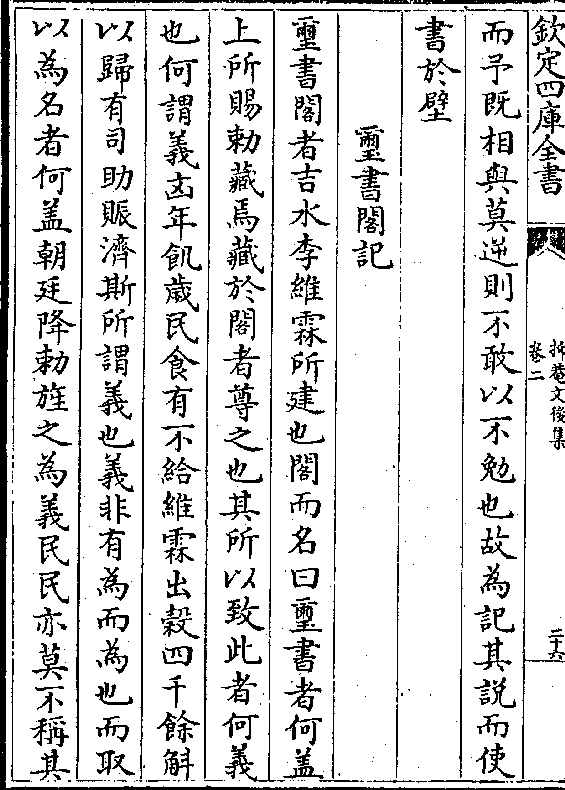 欽定四庫全書
抑菴文後集
卷二
三十六
而予既相與莫逆則不敢以不勉也故為記其說而使
書於壁
璽書閣記
璽書閣者吉水李維霖所建也閣而名曰璽書者何盖
上所賜勅藏焉藏於閣者尊之也其所以致此者何義
也何謂義㐫年飢歲民食有不給維霖出榖四千餘斛
以歸有司助賑濟斯所謂義也義非有為而為也而取
以為名者何盖朝廷降勅旌之為義民民亦莫不稱其